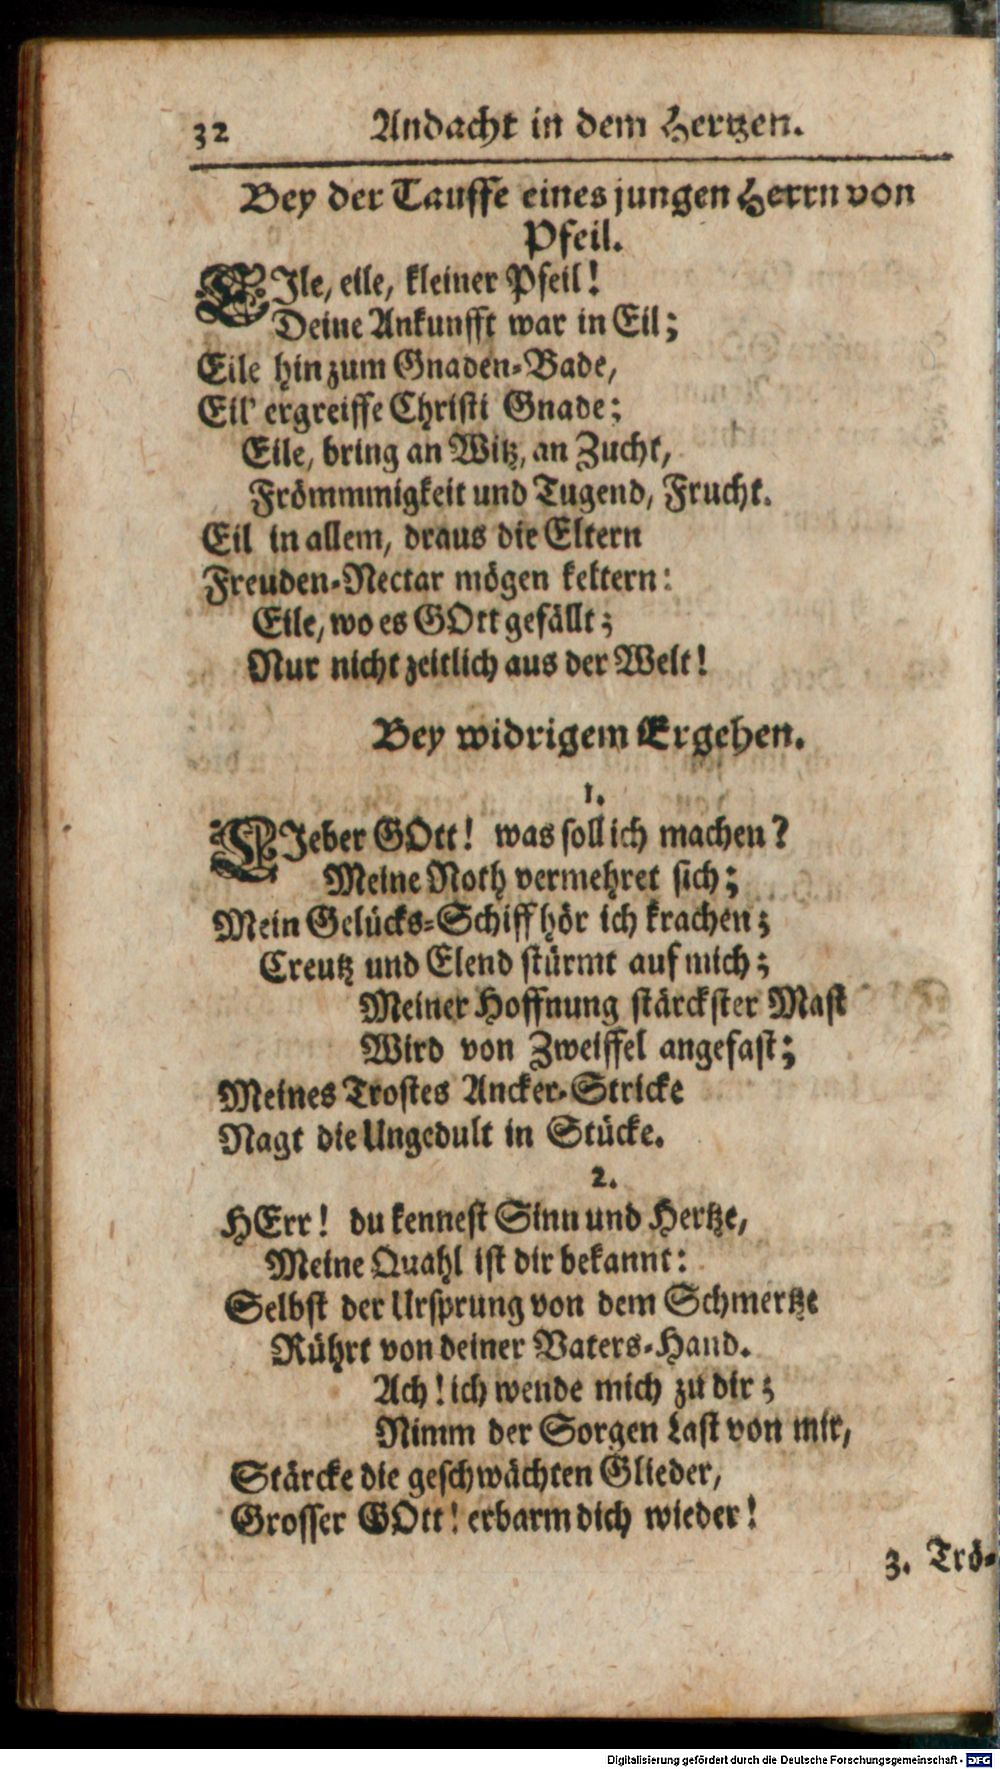 32 Andacht in dem Hertzen.
Bey der Tauffe eines jungen Herrn von
Pfeil.
EIle, eile, kleiner Pfeil!
Deine Ankunfft war in Eil;
Eile hin zum Gnaden-Bade,
Eil' ergreiffe Christi Gnade;
Eile, bring an Witz, an Zucht,
Frömmmigkeit und Tugend, Frucht.
Eil in allem, draus die Eltern
Freuden-Nectar mögen keltern:
Eile, wo es GOtt gefällt;
Nur nicht zeitlich aus der Welt!
Bey widrigem Ergehen.
1.
LIeber GOtt! was soll ich machen?
Meine Noth vermehret sich;
Mein Gelücks-Schiff hör ich krachen;
Creutz und Elend stürmt auf mich;
Meiner Hoffnung stärckster Mast
Wird von Zweiffel angefast;
Meines Trostes Ancker-Stricke
Nagt die Ungedult in Stücke.
2.
HErr! du kennest Sinn und Hertze,
Meine Quahl ist dir bekannt:
Selbst der Ursprung von dem Schmertze
Rührt von deiner Vaters-Hand.
Ach! ich wende mich zu dir;
Nimm der Sorgen Last von mir,
Stärcke die geschwächten Glieder,
Grosser GOtt! erbarm dich wieder!
3. Trö-
Digitalisierung gefördert durch die Deutsche Forschungsgemeinschaft - DFG